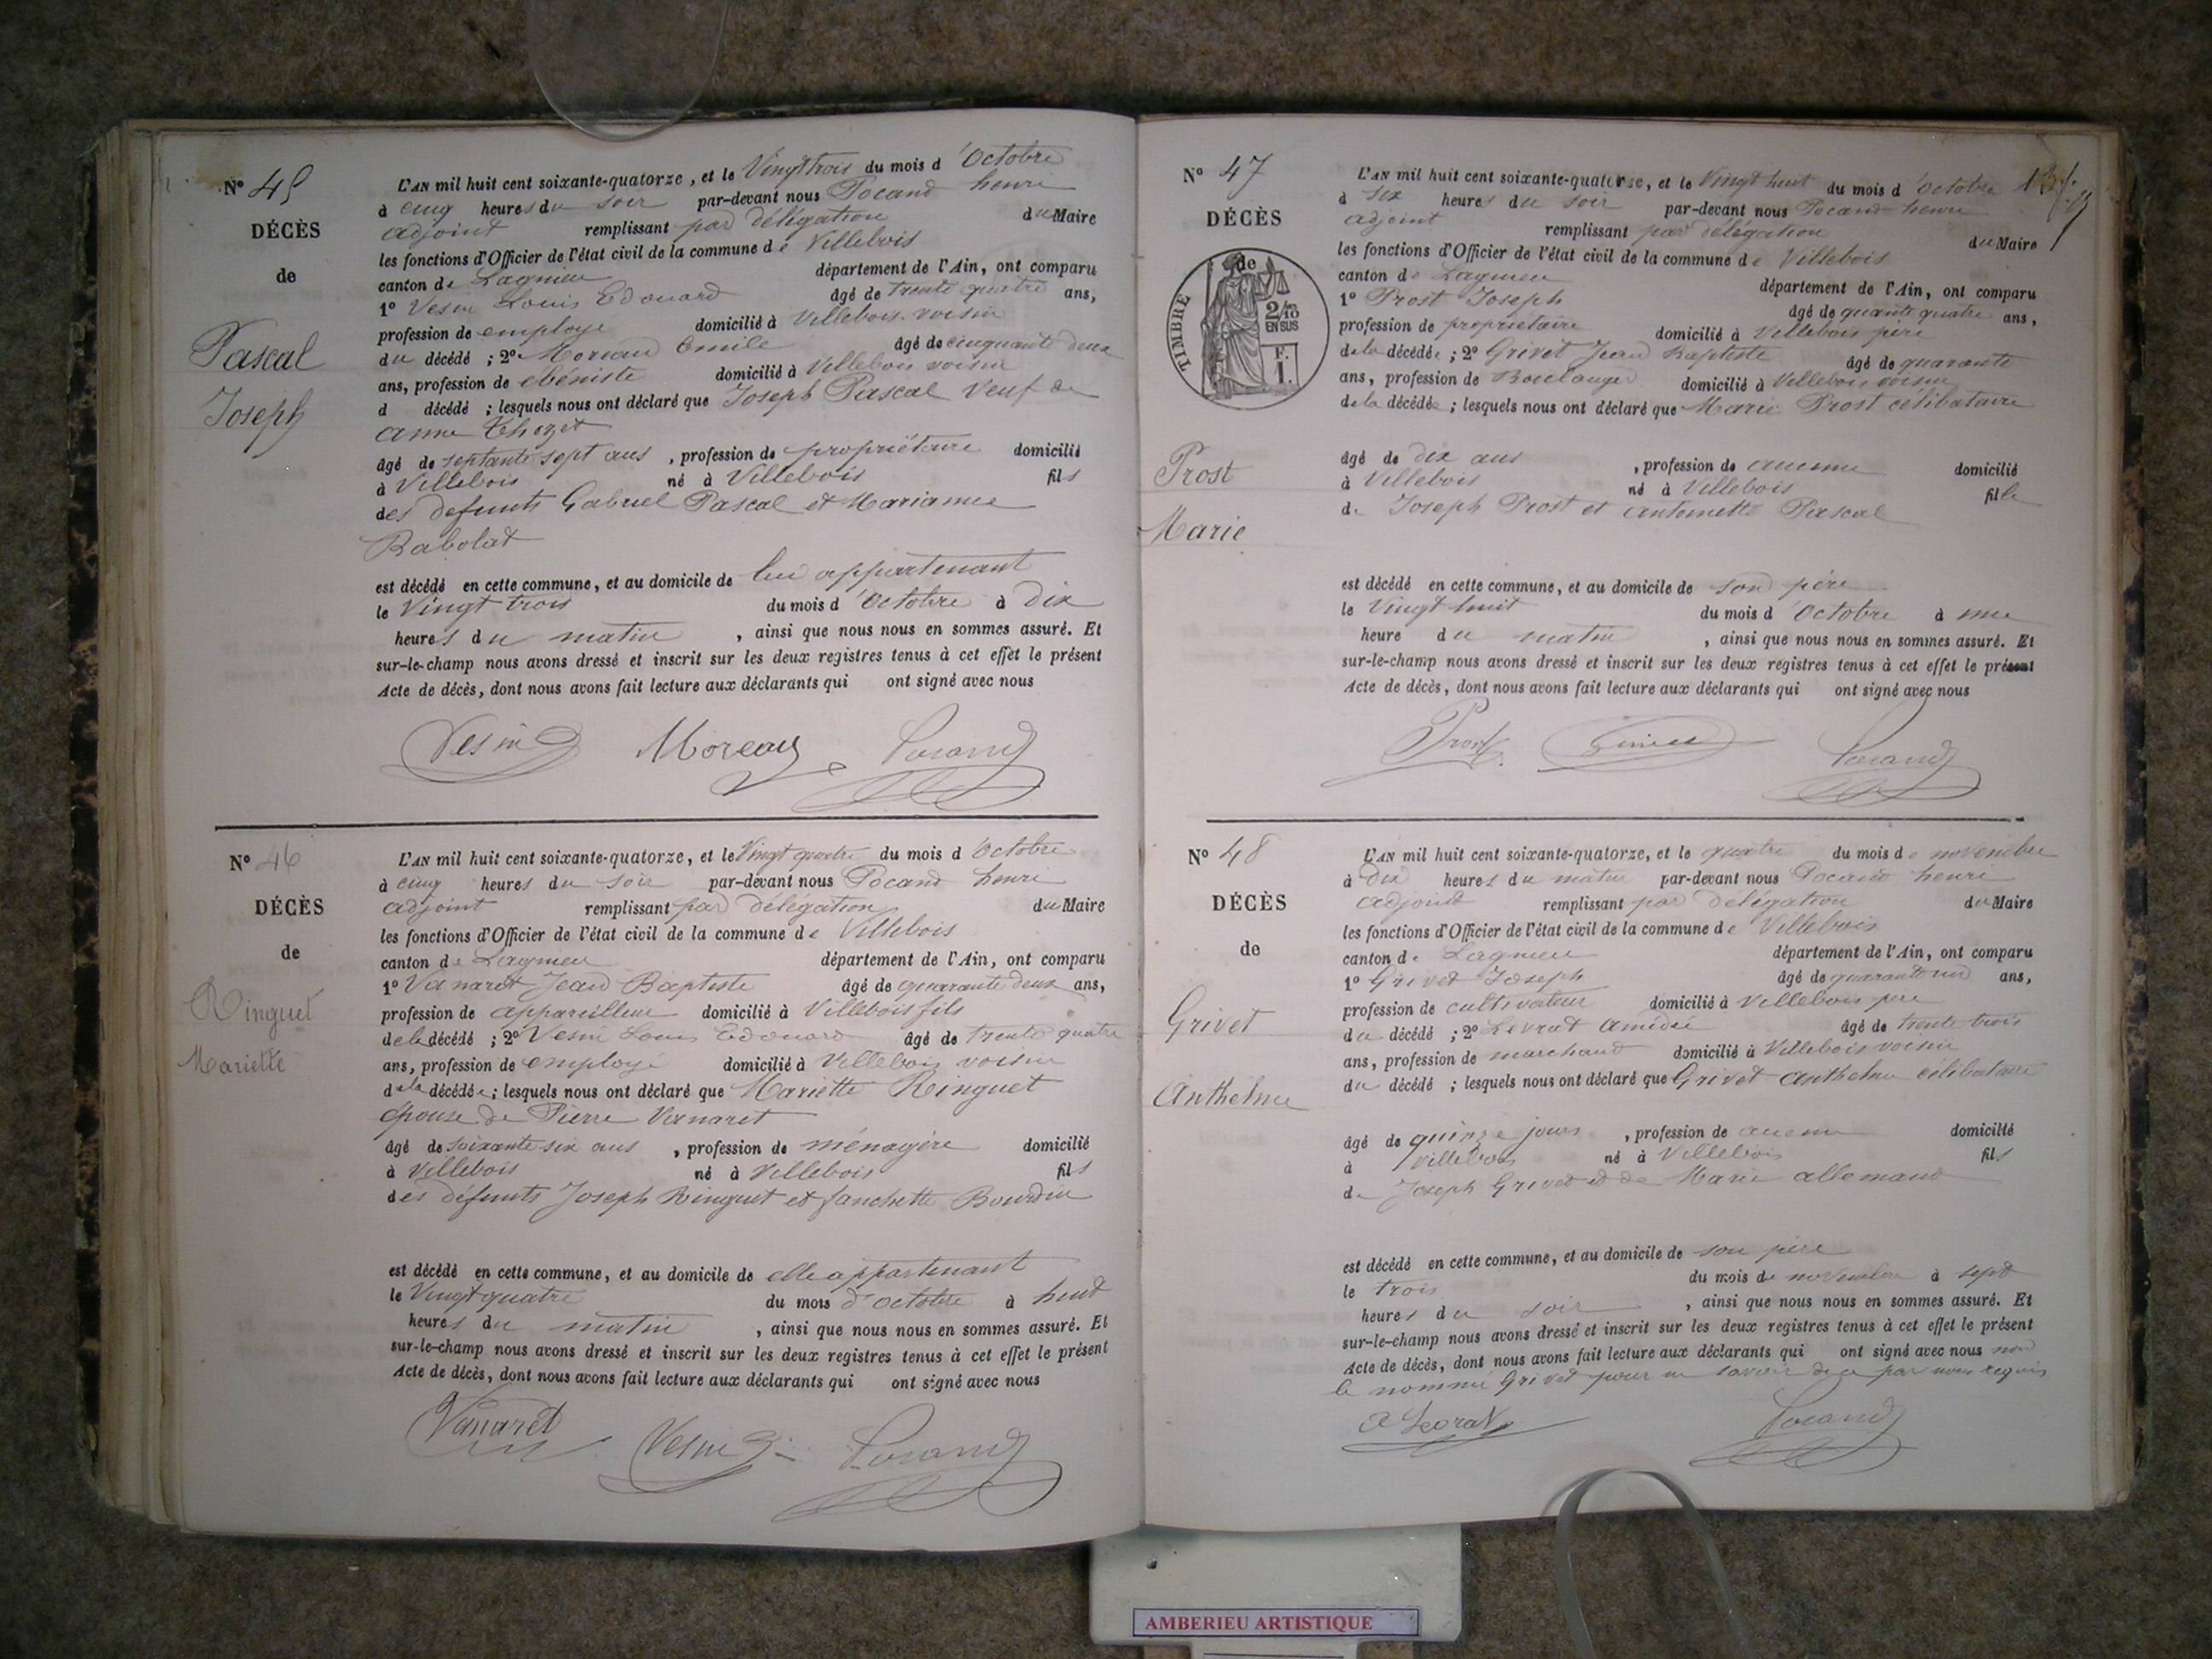 N° 45
DÉCÈS
de
Pascal
Joseph
L'AN mil huit cent soixante-quatorze, et le Vingt trois du mois d'Octobre
à cinq heures du soir par-devant nous Pocand henri
adjoint remplissant par délégation du Maire
les fonctions d'Officier de l'état civil de la commune de Villebois
canton de Lagnieu département de l'Ain, ont comparu
1° Vesin Louis Edouard âgé de trente quatre ans,
profession de employé domicilié à Villebois voisin
du décédé ; 2° Moreau Emile âgé de cinquante deux
ans, profession de ebéniste domicilié à Villebois voisin
d décédé ; lesquels nous ont déclaré que Joseph Pascal Veuf de
anne
âgé de septante sept ans, profession de propriétaire domicilié
à Villebois né à Villebois fils
des defunts Gabriel Pascal et Marianne
Rabolat
est décédé en cette commune, et au domicile de lui appartenant
le Vingt trois du mois d'Octobre à Dix
heures du matin, ainsi que nous nous en sommes assuré. Et
sur-le-champ nous avons dressé et inscrit sur les deux registres tenus à cet effet le présent
Acte de décès, dont nous avons fait lecture aux déclarants qui ont signé avec nous
Vesin Moreau Pocand
N° 46
DÉCÈS
de
Ringuet
Mariette
L'AN mil huit cent soixante-quatorze, et le Vingt quatre du mois d'Octobre
à cinq heures du soir par-devant nous Pocand henri
adjoint remplissant par délégation du Maire
les fonctions d'Officier de l'état civil de la commune de Villebois
canton de Lagnieu département de l'Ain, ont comparu
1° Vanaret Jean Baptiste âgé de quarante deux ans,
profession de appareilleur domicilié à Villebois fils
de la décédé ; 2° Vesin Louis Edouard âgé de trente quatre
ans, profession de employé domicilié à Villebois voisin
de la décédée ; lesquels nous ont déclaré que Mariette Ringuet
épouse de Pierre Vanaret
âgé de soixante six ans, profession de ménagère domicilié
à Villebois né à Villebois fils
des défunts Joseph Ringuet et fanchette Bourdin
est décédé en cette commune, et au domicile de elle appartenant
le Vingt quatre du mois d'octobre à huit
heures du matin, ainsi que nous nous en sommes assuré. Et
sur-le-champ nous avons dressé et inscrit sur les deux registres tenus à cet effet le présent
Acte de décès, dont nous avons fait lecture aux déclarants qui ont signé avec nous
Vanaret Vesin Pocand
N° 47
DÉCÈS
de
TIMBRE
2/10
EN SUS
F.
1.
Prost
Marie
L'AN mil huit cent soixante-quatorze, et le Vingt huit du mois d'octobre
à six heures du soir par-devant nous Pocand henri
adjoint remplissant par délégation du Maire
les fonctions d'Officier de l'état civil de la commune de Villebois
canton de Lagnieu département de l'Ain, ont comparu
1° Prost Joseph âgé de quarante quatre ans,
profession de propriétaire domicilié à Villebois père
de la décédée ; 2° Grivet Jean Baptiste âgé de quarante
ans, profession de Boulanger domicilié à Villebois voisin
de la décédée ; lesquels nous ont déclaré que Marie Prost célibataire
âgé de dix ans, profession de aucune domicilié
à Villebois né à Villebois fille
de Joseph Prost et antoinette Pascal
est décédé en cette commune, et au domicile de son père
le Vingt huit du mois d'Octobre à une
heure du matin, ainsi que nous nous en sommes assuré. Et
sur-le-champ nous avons dressé et inscrit sur les deux registres tenus à cet effet le présent
Acte de décès, dont nous avons fait lecture aux déclarants qui ont signé avec nous
Prost Pocand
N° 48
DÉCÈS
de
Grivet
Anthelme
L'AN mil huit cent soixante-quatorze, et le quatre du mois de novembre
à Dix heures du matin par-devant nous Pocand henri
adjoint remplissant par délégation du Maire
les fonctions d'Officier de l'état civil de la commune de Villebois
canton de Lagnieu département de l'Ain, ont comparu
1° Grivet Joseph âgé de ans,
profession de cultivateur domicilié à Villebois père
du décédé ; 2° Levrat amédée âgé de trente trois
ans, profession de marchand domicilié à Villebois voisin
du décédé ; lesquels nous ont déclaré que Grivet anthelme célibataire
âgé de quinze jours, profession de aucune domicilié
à Villebois né à Villebois fils
de Joseph Grivet et de Marie allemand
est décédé en cette commune, et au domicile de son père
le trois du mois de novembre à sept
heures du soir, ainsi que nous nous en sommes assuré. Et
sur-le-champ nous avons dressé et inscrit sur les deux registres tenus à cet effet le présent
Acte de décès, dont nous avons fait lecture aux déclarants qui ont signé avec nous non
le nommé Grivet pour ne savoir de ce par nous requis
A Levrat Pocand
AMBERIEU ARTISTIQUE